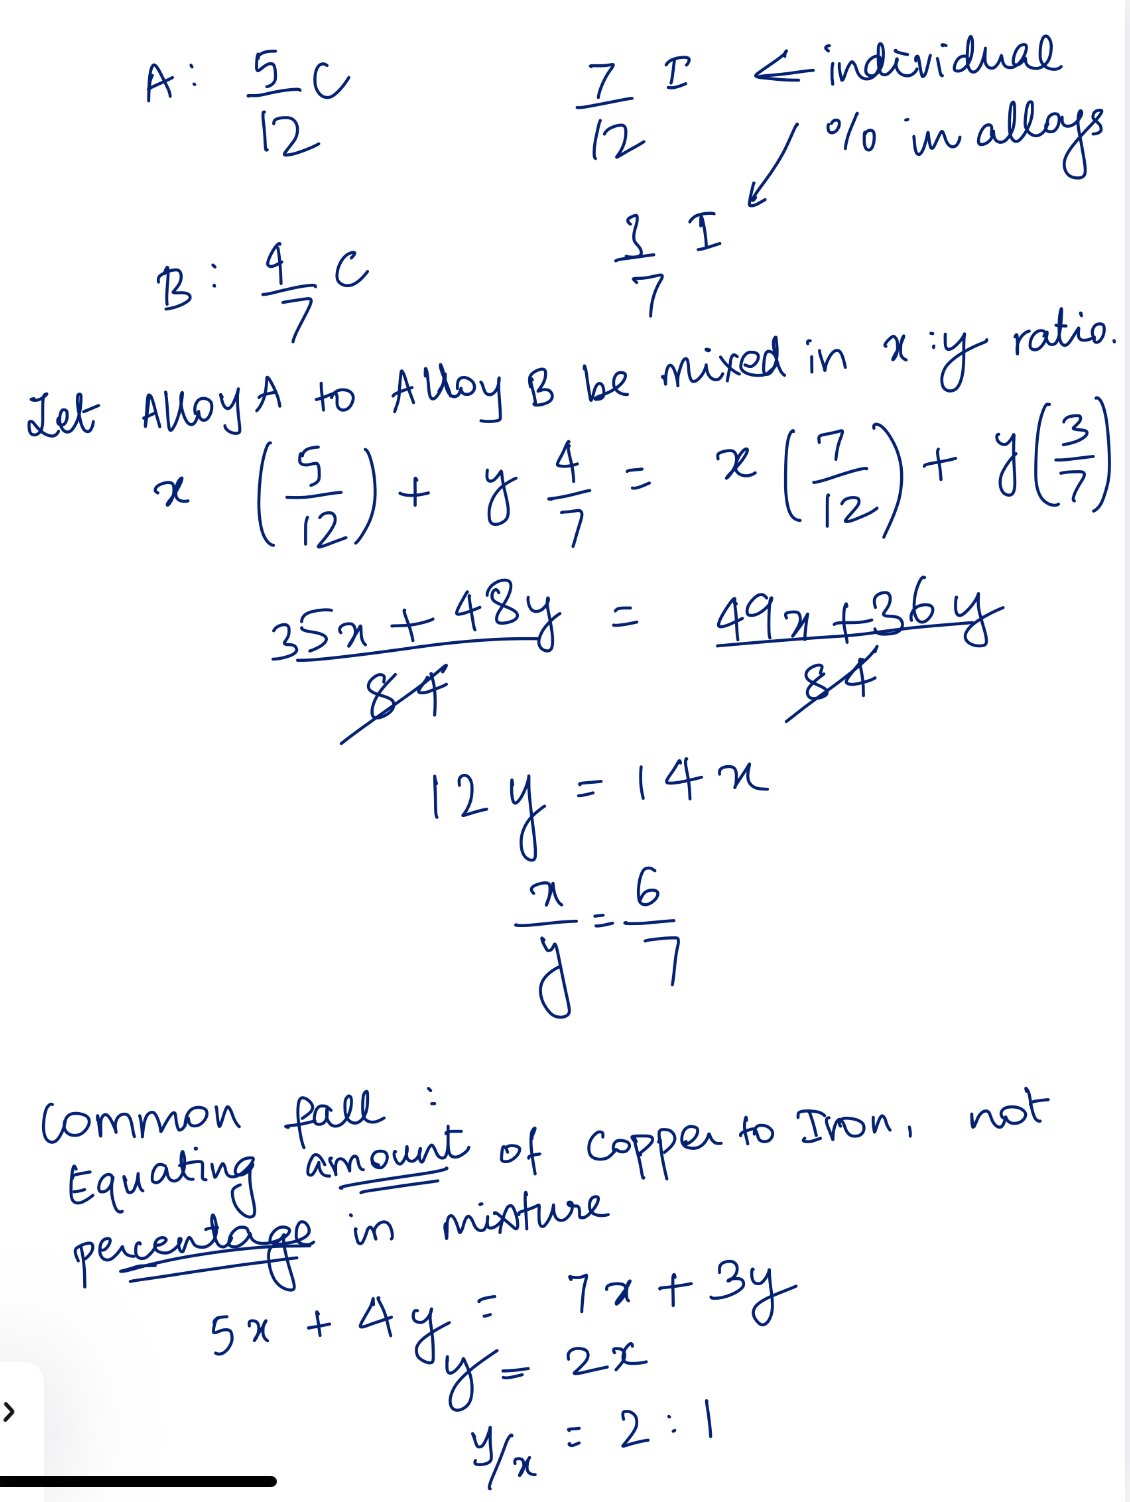 A: 5/12 C 7/12 I ← individual
% in alloys
B: 4/7 C 3/7 I
Let Alloy A to Alloy B be mixed in x:y ratio.
x (5/12) + y 4/7 = x (7/12) + y (3/7)
35x + 48y / 84 = 49x + 36y / 84
12y = 14x
x/y = 6/7
Common fall :
Equating amount of copper to Iron, not
percentage in mixture
5x + 4y = 7x + 3y
y = 2x
y/x = 2 : 1